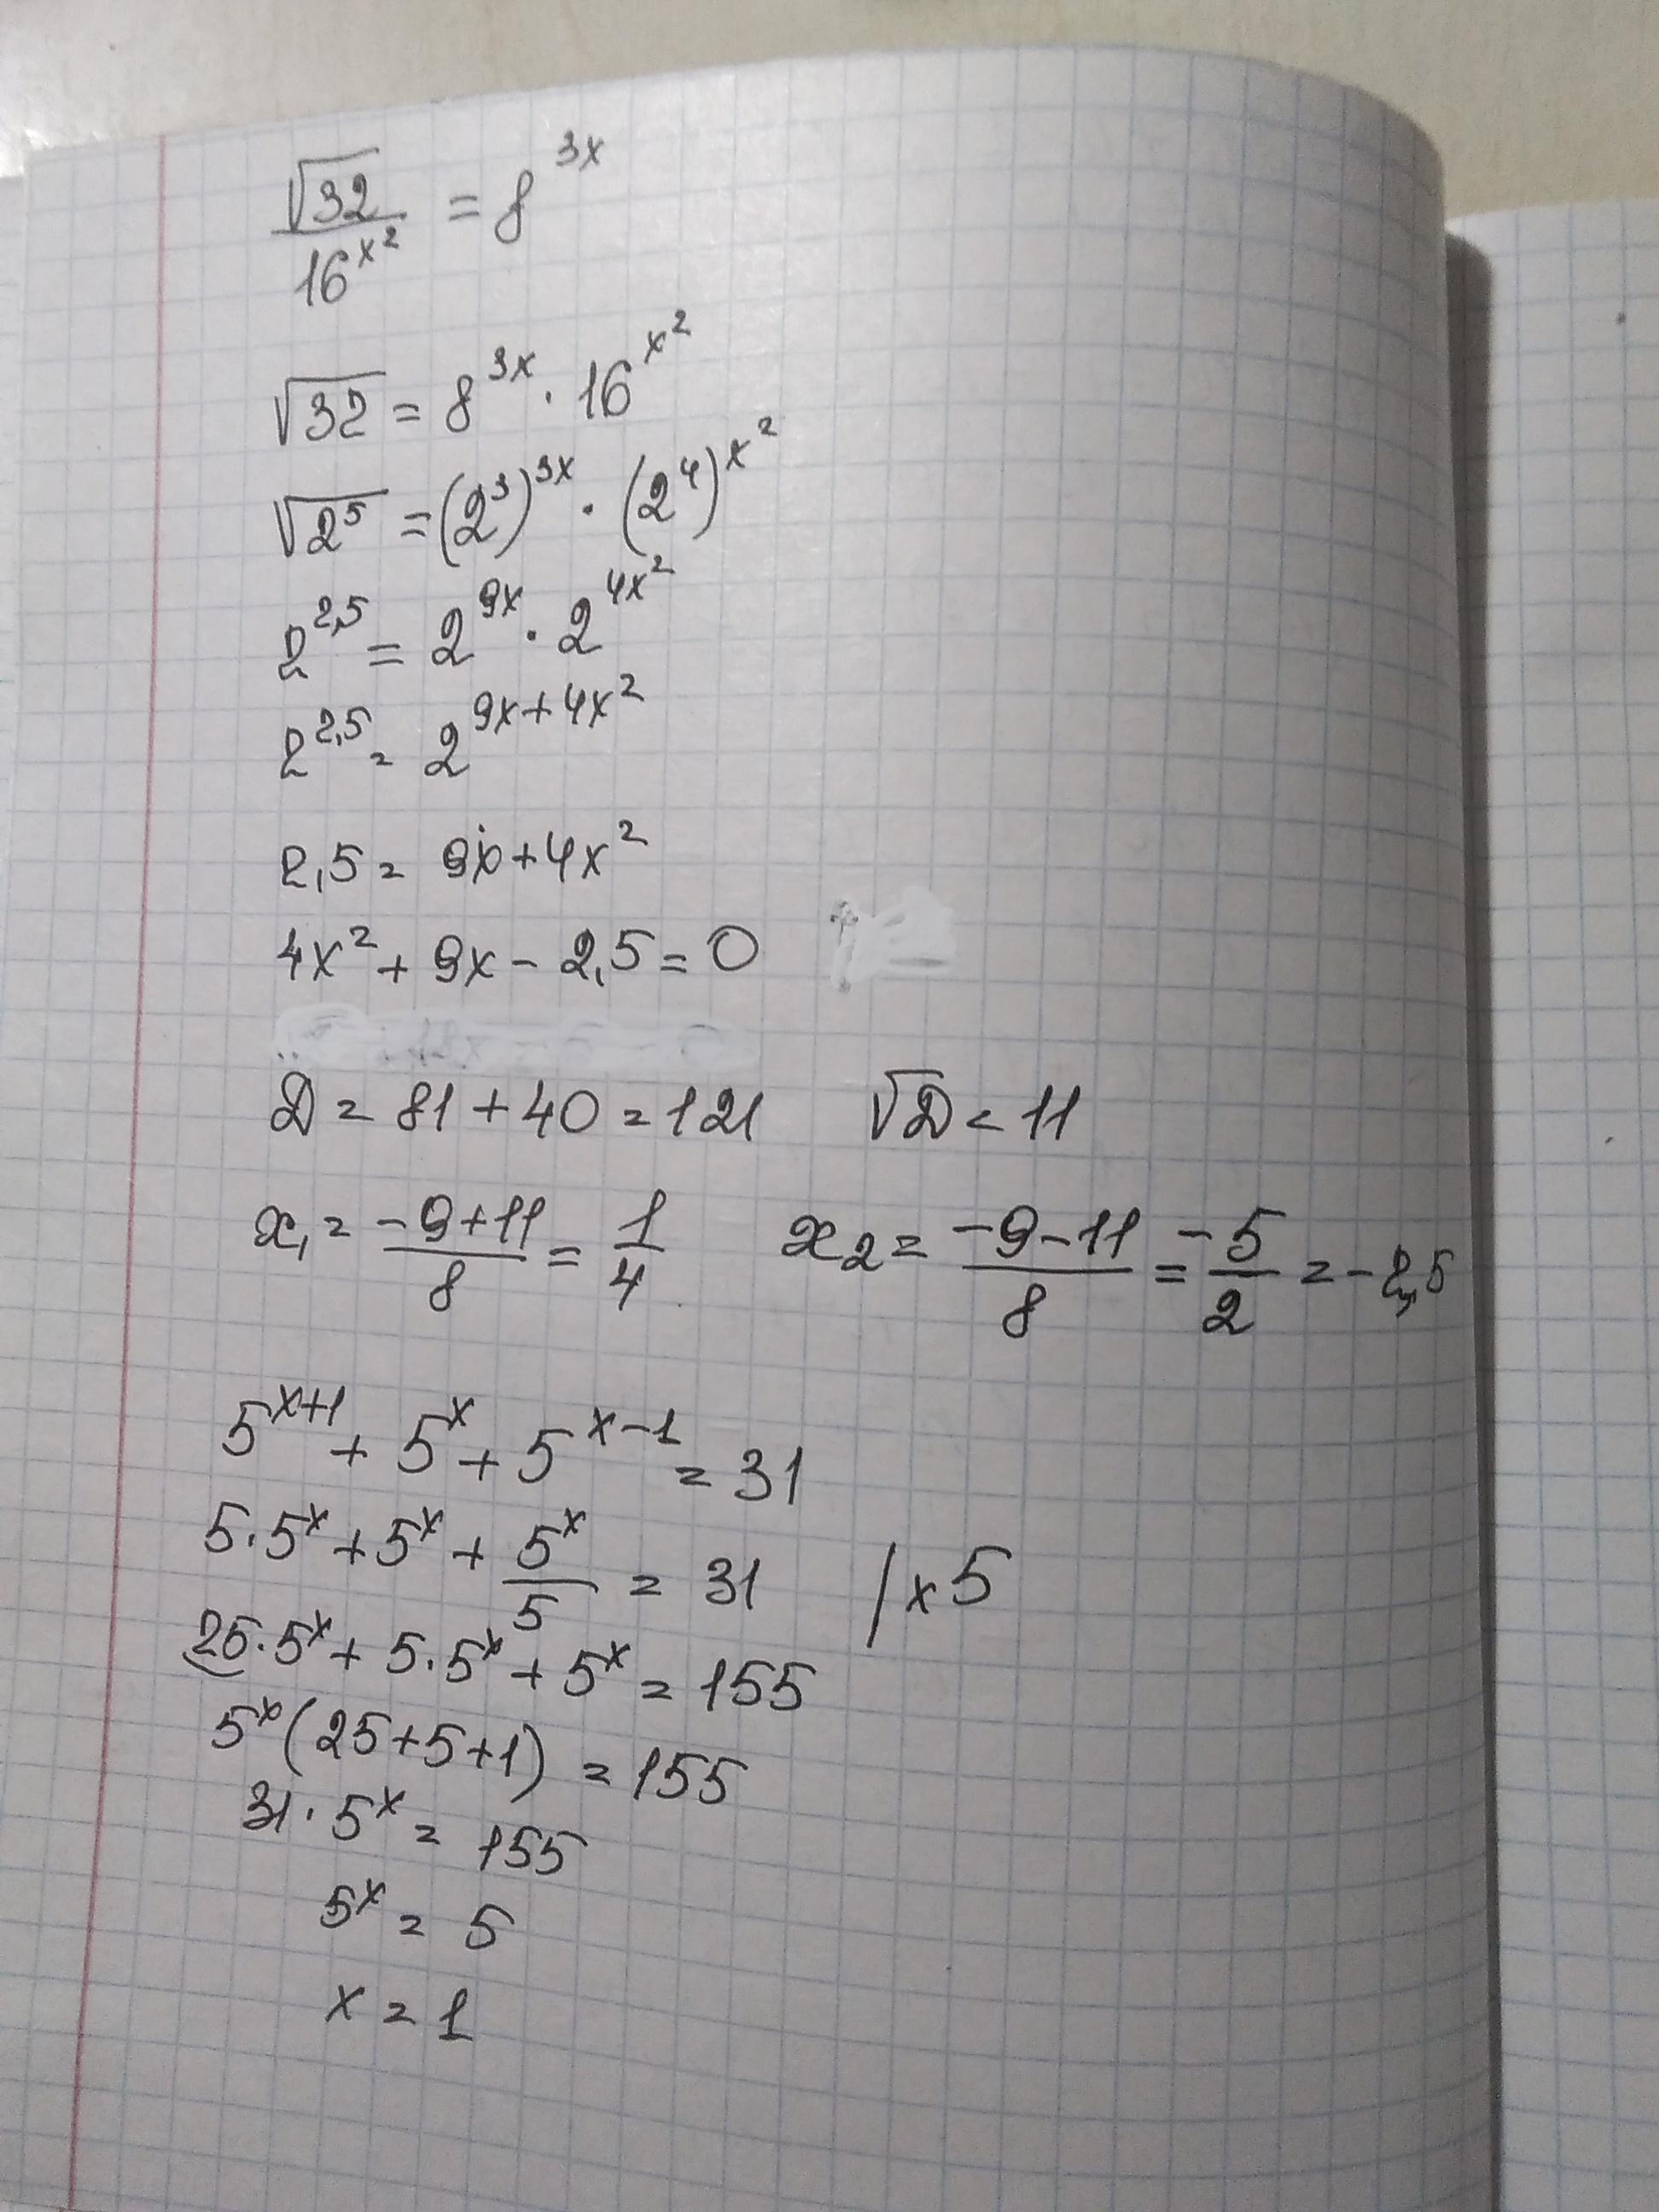 √32 / 16^x² = 8^3x
√32 = 8^3x · 16^x²
√2⁵ = (2³)^3x · (2⁴)^x²
2^2,5 = 2^9x · 2^4x²
2^2,5 = 2^9x+4x²
2,5 = 9x + 4x²
4x² + 9x − 2,5 = 0
D = 81 + 40 = 121 √D = 11
x₁ = −9+11 / 8 = 1/4 x₂ = −9−11 / 8 = −5/2 = −2,5
5^x+1 + 5^x + 5^x−1 = 31
5·5^x + 5^x + 5^x/5 = 31 /×5
25·5^x + 5·5^x + 5^x = 155
5^x(25+5+1) = 155
31·5^x = 155
5^x = 5
x = 1